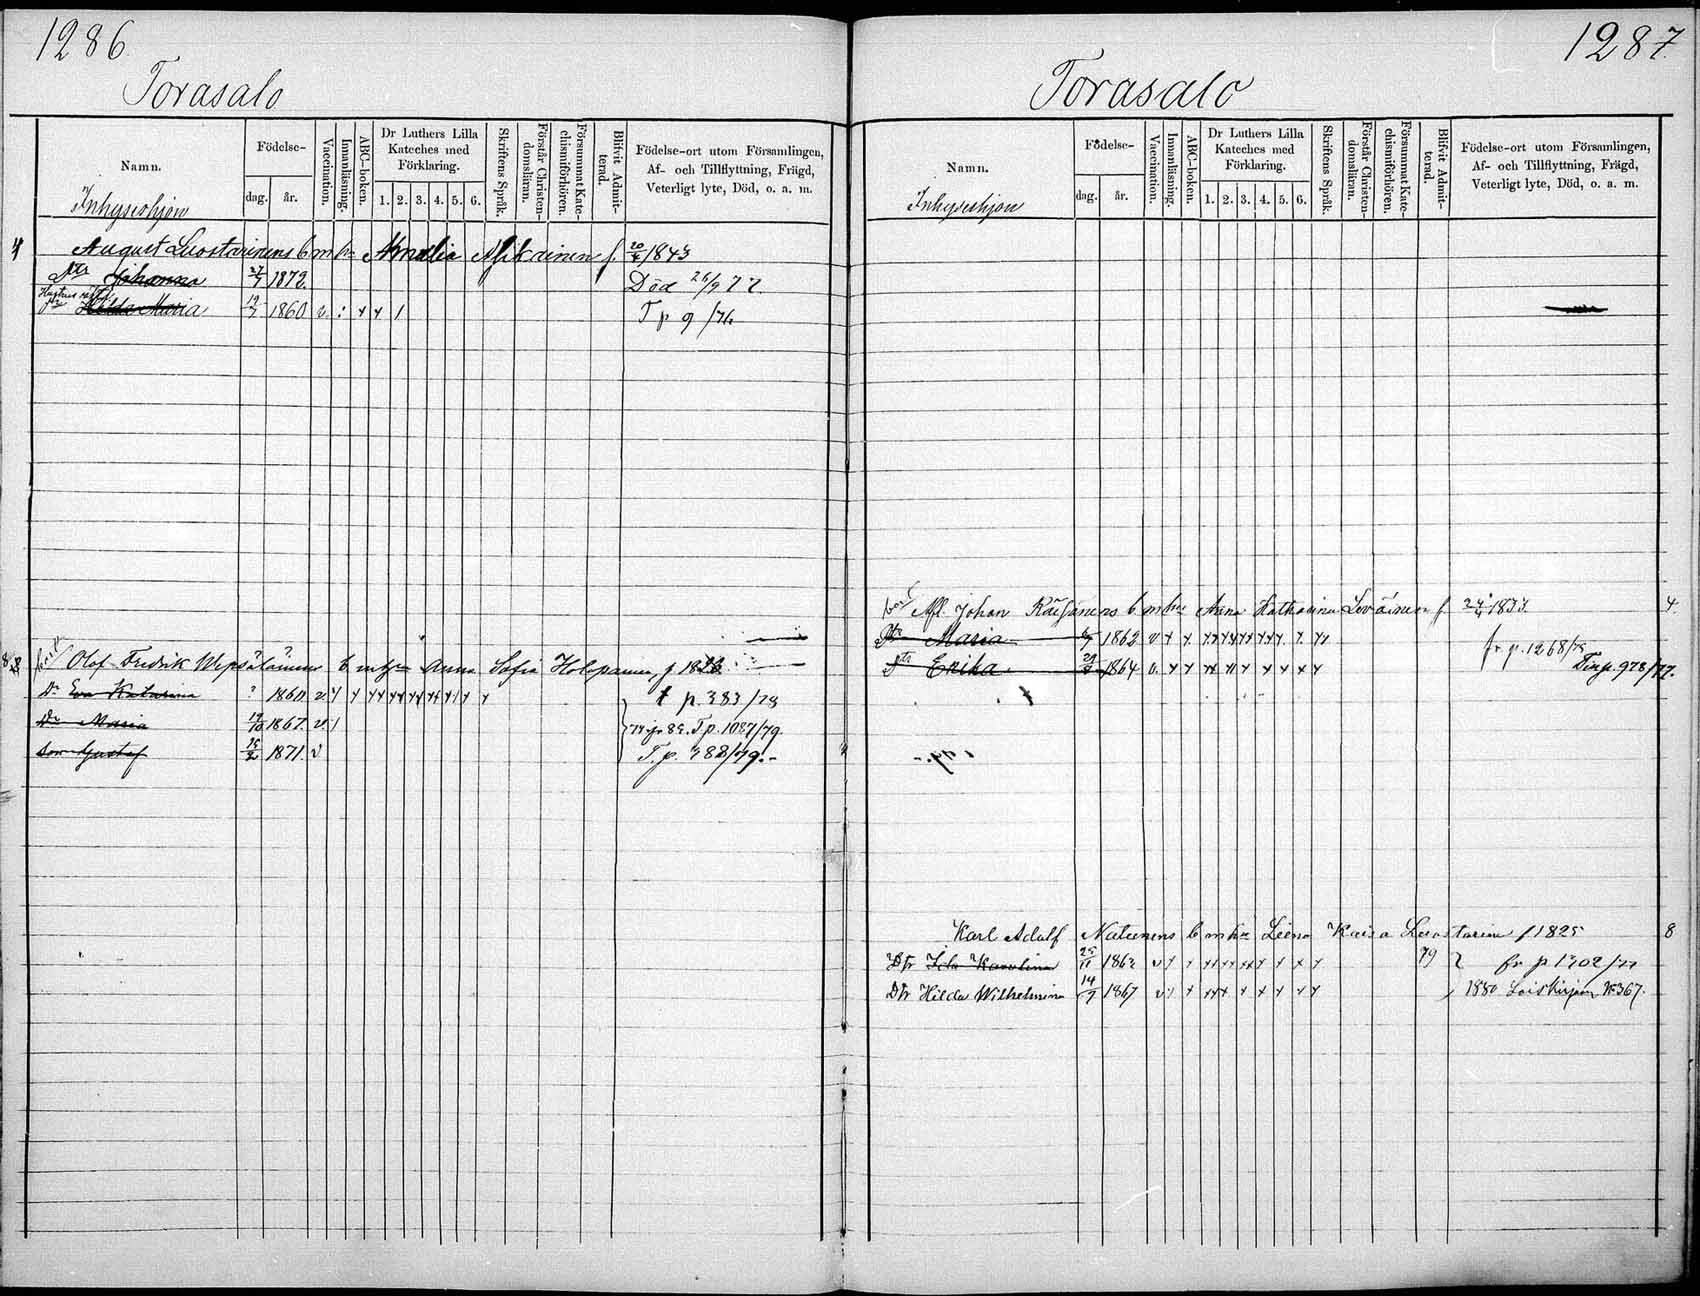 1286
Torasalo
Namn.
Födelse-
dag.
år.
Vaccination.
Innanläsning.
ABC-boken.
Dr Luthers Lilla
Kateches med
Förklaring.
1. 2. 3. 4. 5. 6.
Skriftens Språk.
Förstår Christen-
domsläran.
Försummat Kate-
chismiförhören.
Blifvit Admit-
terad.
Födelse-ort utom Församlingen,
Af- och Tillflyttning, Frägd,
Veterligt lyte, Död, o. a. m.
Inhyseshjon
4 August Luostarinens b m hu Amalia Asikainen f. 20/4 1843
Dtr Johanna 27/7 1872. Död 26/9 77
Maria 19/7 1860 v. : x x 1 T p 9/76
8 Olof Fredrik Wepsäläinens b m hu Anna Sofia Holopainen, f
Dr Eva Katarina ? 1860. v. p. 383/78
Dr Maria 19/10 1867. v. T.p. 1087/79.
Son Gustaf 1871. v T.p. 388/79.-
1287
Torasalo
Namn.
Födelse-
dag.
år.
Vaccination.
Innanläsning.
ABC-boken.
Dr Luthers Lilla
Kateches med
Förklaring.
1. 2. 3. 4. 5. 6.
Skriftens Språk.
Förstår Christen-
domsläran.
Försummat Kate-
chismiförhören.
Blifvit Admit-
terad.
Födelse-ort utom Församlingen,
Af- och Tillflyttning, Frägd,
Veterligt lyte, Död, o. a. m.
Inhyseshjon
Afl. Johan Räisänens b m hu Anna Katharina Lovéinen f 1833 4
Dtr Maria 1862 v x x fr. p. 1268/78
Dtr Erika 1864 v. x x T. p. 978/77.
Karl Adolf Natunens b m hu Leena Kaisa Luostarinen f 1825 8
Dtr Ida Karolina 25/11 1862 v x x 79 fr p 1302/77
Dtr Hilda Wilhelmina 14/9 1867 v x x 1880 Loiskirjan N 367.